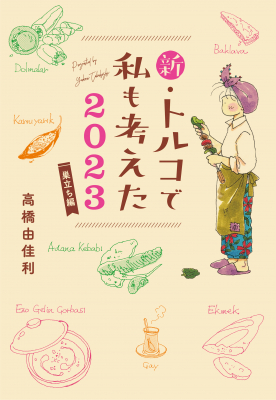 Dolmalar
Presented by
Yukari Takahashi
Baklava
新・トルコで
私も考えた
2023
巣立ち編
Karnıyarık
高橋由佳利
Adana Kebabı
Ezo Gelin Çorbası
Çay
Ekmek